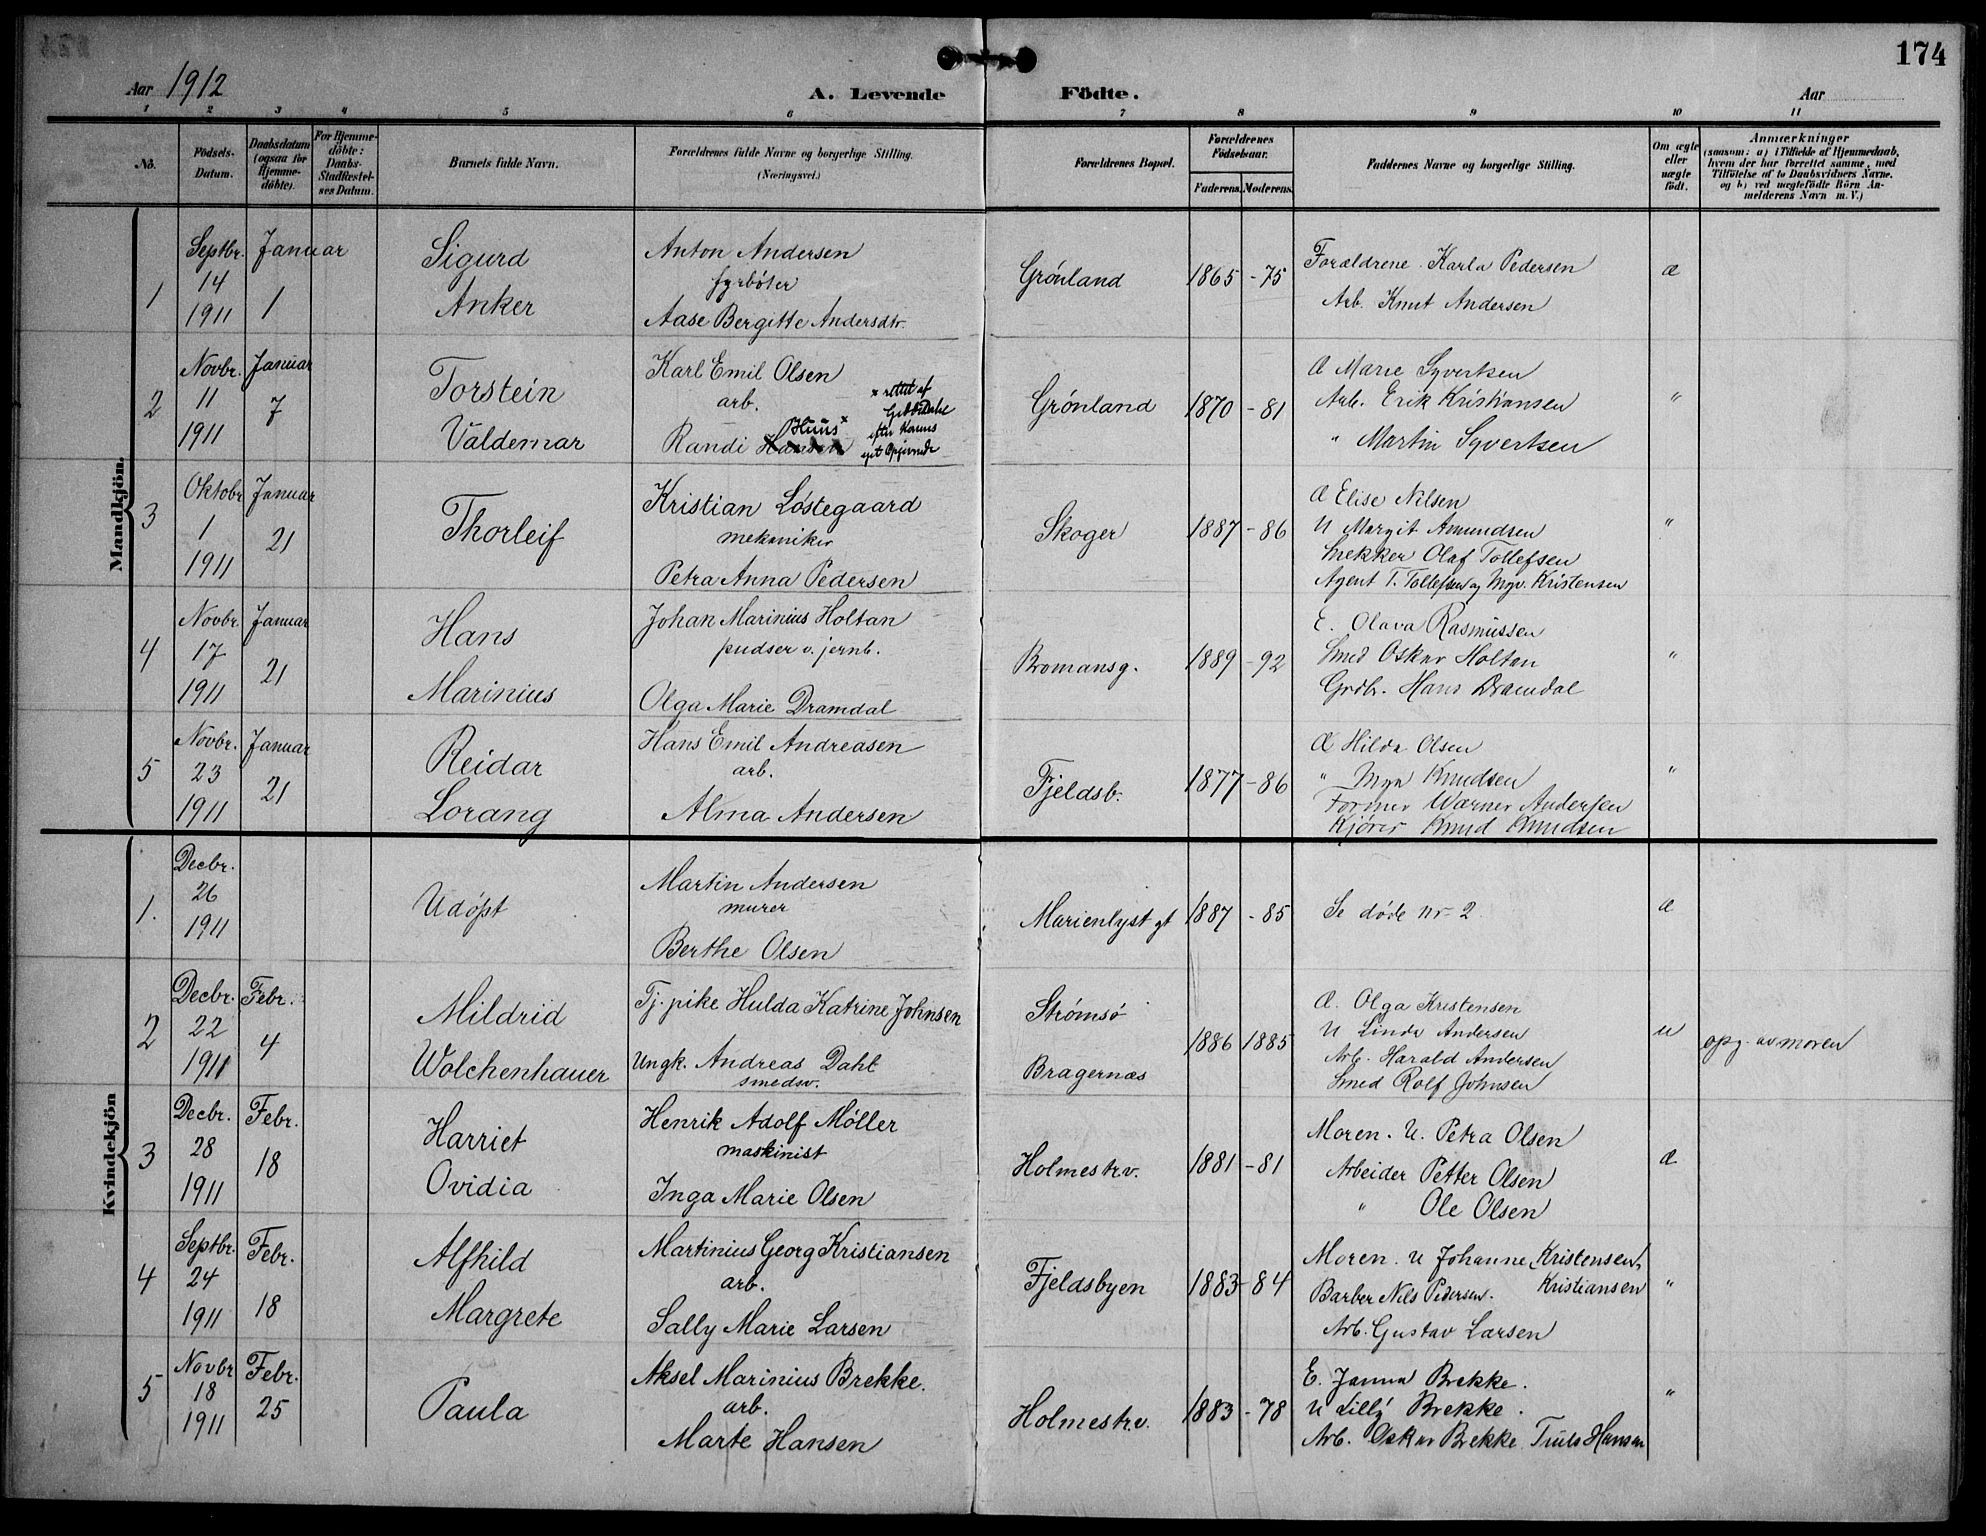 174
Aar 1912
A. Levende
Födte.
Aar
1 2 3 4 5 6 7 8 9 10 11
No.
Födsels-Datum.
Daabsdatum (ogsaa for Hjemme-döbte).
For Hjemme-döbte: Daabs-Stadfæstel-ses Datum.
Barnets fulde Navn.
Forældrenes fulde Navne og borgerlige Stilling.
(Næringsvei.)
Forældrenes Bopæl.
Forældrenes Födselsaar.
Faderens. Moderens.
Faddernes Navne og borgerlig Stilling.
Om ægte eller uægte födt.
Anmærkninger
(saasom: a) i Tilfælde af Hjemmedaab,
hvem der har forrettet samme, med
Tilföielse af to Daabsvidners Navne.
og b) ved uægtefödte Börn An-
melderens Navn m. V.)
Mandkjön.
1
Septbr. 14 1911
Januar 1
Sigurd
Anker
Anton Andersen
fyrbøter
Aase Bergitte Andersdtr.
Grønland
1865 - 75
Forældrene. Karla Pedersen
Arb. Knut Andersen
æ
2
Novbr. 11 1911
Januar 7
Torstein
Valdemar
Karl Emil Olsen
arb.
Randi Hansen Huus x
x rettet af
efter Konens
Grønland
1870 - 81
Æ Marie Syvertsen
Arb. Erik Kristiansen
" Martin Syvertsen
"
3
Oktobr 1 1911
Januar 21
Thorleif
Kristian Løstegaard
mekaniker
Petra Anna Pedersen
Skoger
1887 - 86
Æ Elise Nilsen
U Margit Amundsen
Snekker Olaf Tollefsen
Agent T. Tollefsen og Myv. Kristensen
"
4
Novbr. 17 1911
Januar 21
Hans
Marinius
Johan Marinius Holtan
pudser v. jernb.
Olga Marie Dramdal
Bromansg.
1889 - 92
E. Olava Rasmussen
Smed Oskar Holtan
Grdbr. Hans Dramdal
"
5
Novbr. 23 1911
Januar 21
Reidar
Lorang
Hans Emil Andreasen
arb.
Alma Andersen
Fjeldsb.
1877 - 86
Æ Hilda Olsen
" Mya Knudsen
Former Warner Andersen
Kjører Knud Knudsen
"
Kvindekjön
1.
Decbr. 26 1911
Udøpt
Martin Andersen
murer
Berthe Olsen
Marienlyst gt
1887 - 85
Se døde nr 2
æ
2
Decbr. 22 1911
Febr. 4
Mildrid
Wolchenhauer
Tj. pike Hulda Katrine Johnsen
Ungk. Andreas Dahl
smedsv.
Strømsø
Bragernæs
1886 1885
Æ. Olga Kristensen
U Linda Andersen
Arb. Harald Andersen
Smed Rolf Johnsen
u
opg. av moren
3
Decbr. 28 1911
Febr. 18
Harriet
Ovidia
Henrik Adolf Møller
maskinist
Inga Marie Olsen
Holmestr.v.
1881 - 81
Moren. U. Petra Olsen
Arbeider Petter Olsen
" Ole Olsen
æ
4
Septbr. 24 1911
Febr. 18
Alfhild
Margrete
Martinius Georg Kristiansen
arb.
Sally Marie Larsen
Fjeldsbyen
1883 - 84
Moren. U Johanne Kristensen,
Barber Nils Pedersen. Kristiansen
Arb. Gustav Larsen
"
5
Novbr 18 1911
Febr. 25
Paula
Aksel Marinius Brekke.
arb.
Marte Hansen
Holmestr.v.
1883 - 78
E. Janna Brekke.
U Lilly Brekke.
Arb. Oskar Brekke. Truls Hansen
"